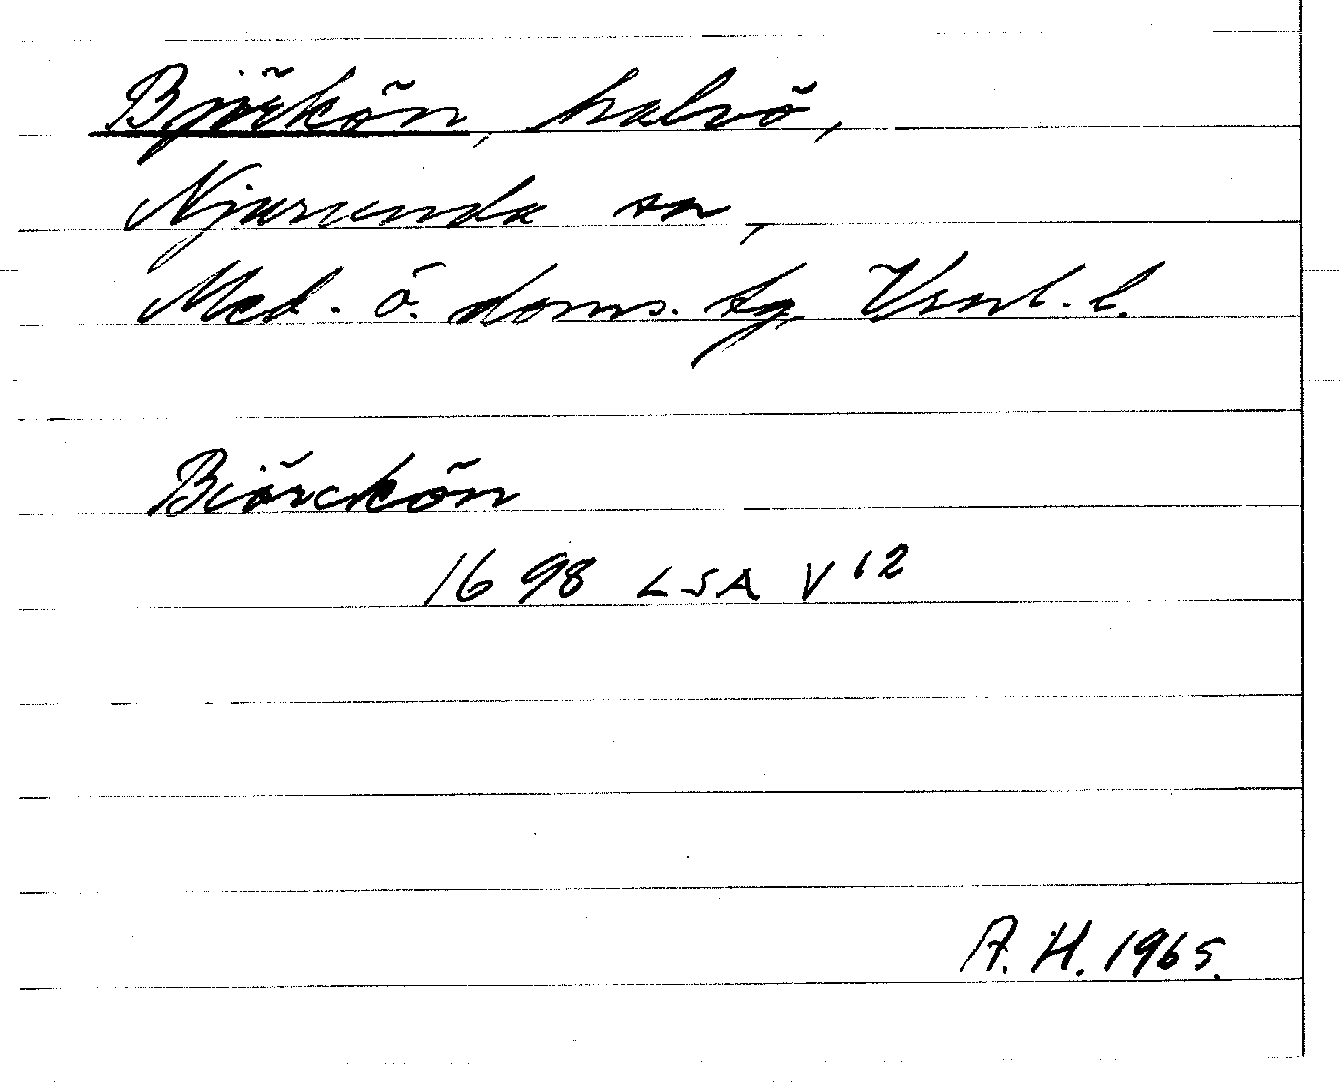 Björkön, halvö,
Njurunda sn,
Med. ö. doms. tg. Vsnl. l.
Biörckön
1698 LSA V 12
A. H. 1965.